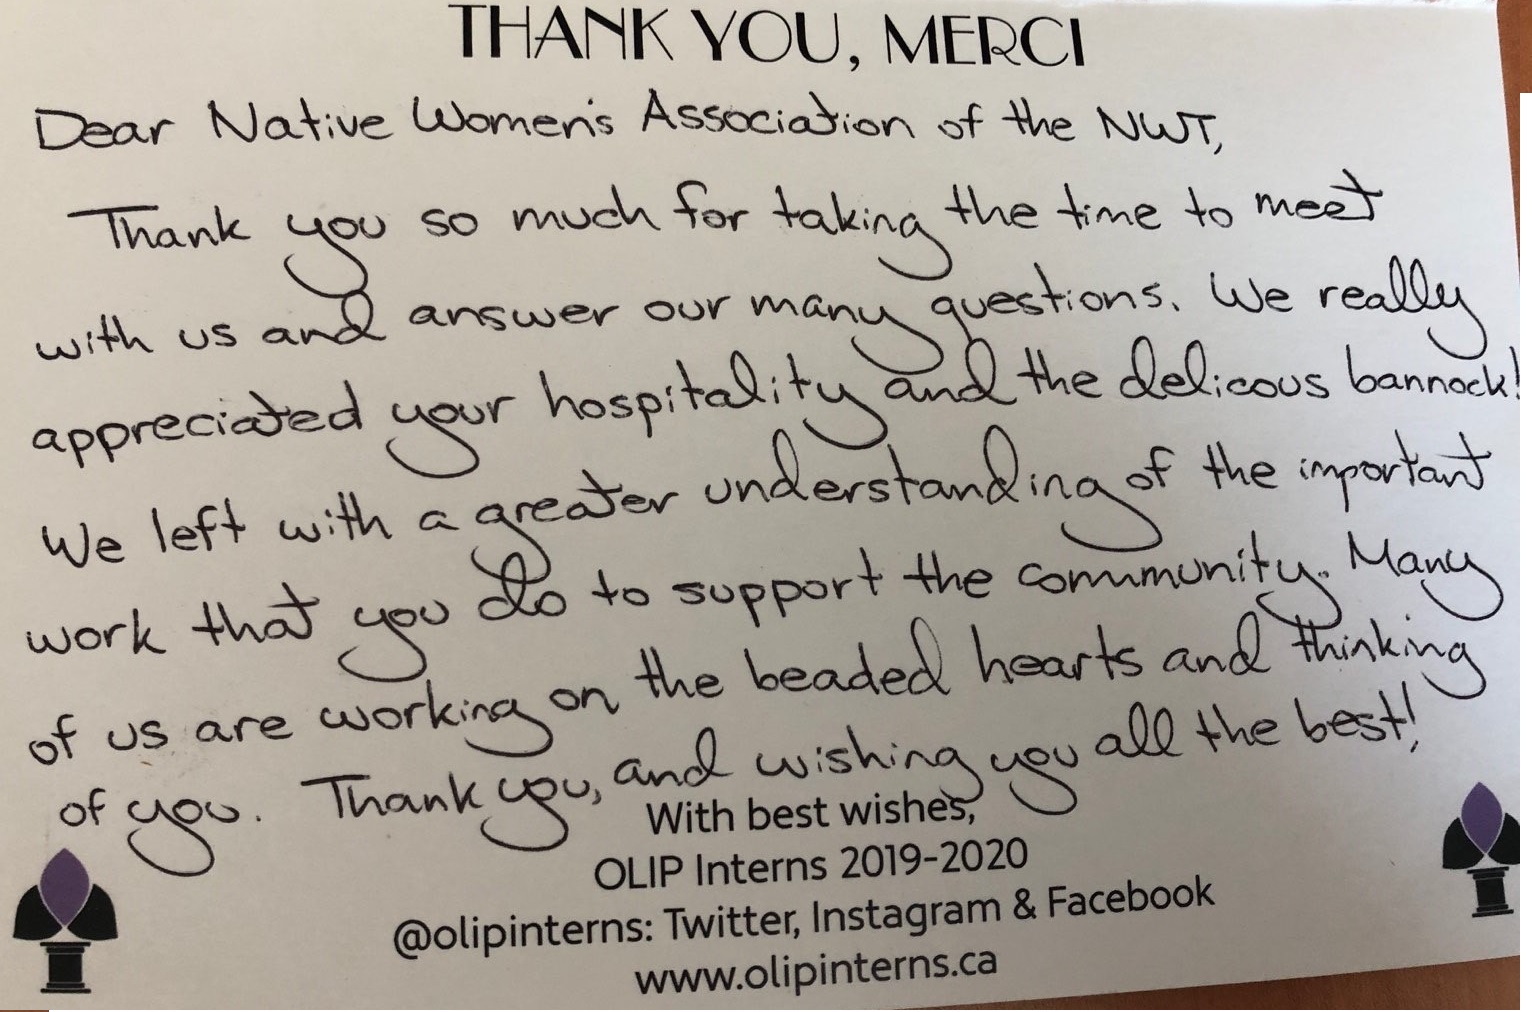 THANK YOU, MERCI
Dear Native Women's Association of the NWT,
Thank you so much for taking the time to meet
with us and answer our many questions. We really
appreciated your hospitality and the delicous bannock!
We left with a greater understanding of the important
work that you do to support the community. Many
of us are working on the beaded hearts and thinking
of you. Thank you, and wishing you all the best!
With best wishes,
OLIP Interns 2019-2020
@olipinterns: Twitter, Instagram & Facebook
www.olipinterns.ca